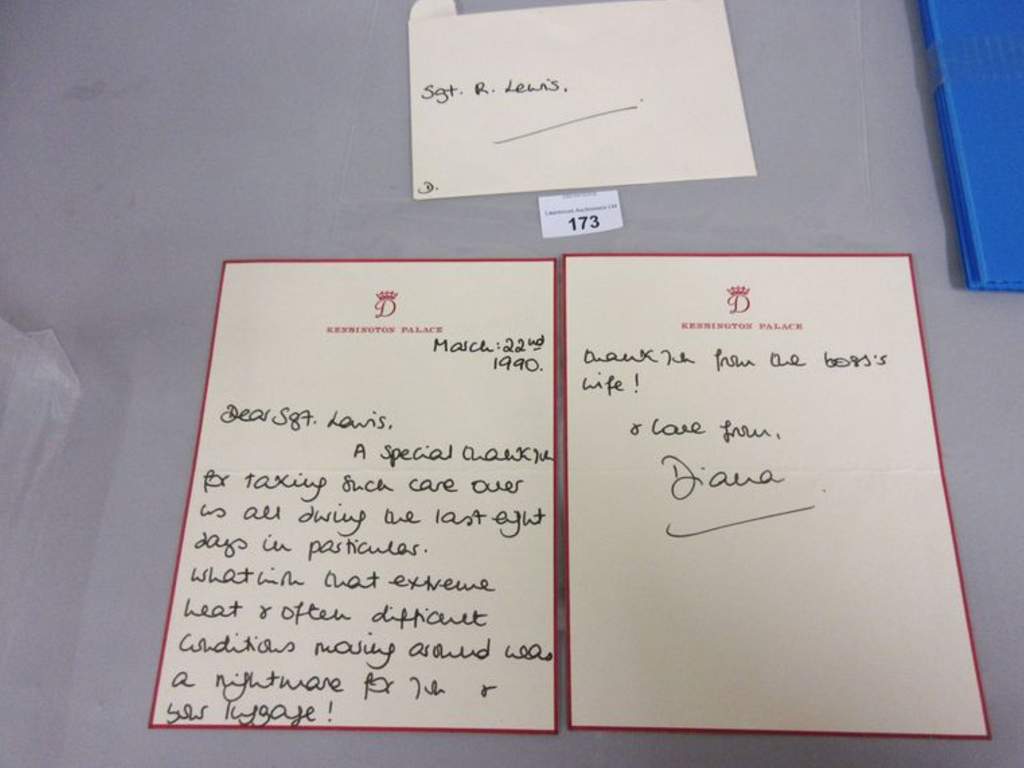 Sgt. R. Lewis.
D.
173
D
KENSINGTON PALACE
March: 22nd
1990.
Dear Sgt. Lewis,
A special thank you
for taking such care over
us all during the last eight
days in particular.
What with that extreme
heat & often difficult
conditions moving around was
a nightmare for you &
your luggage!
D
KENSINGTON PALACE
thank you from the boss's
wife!
& love from,
Diana